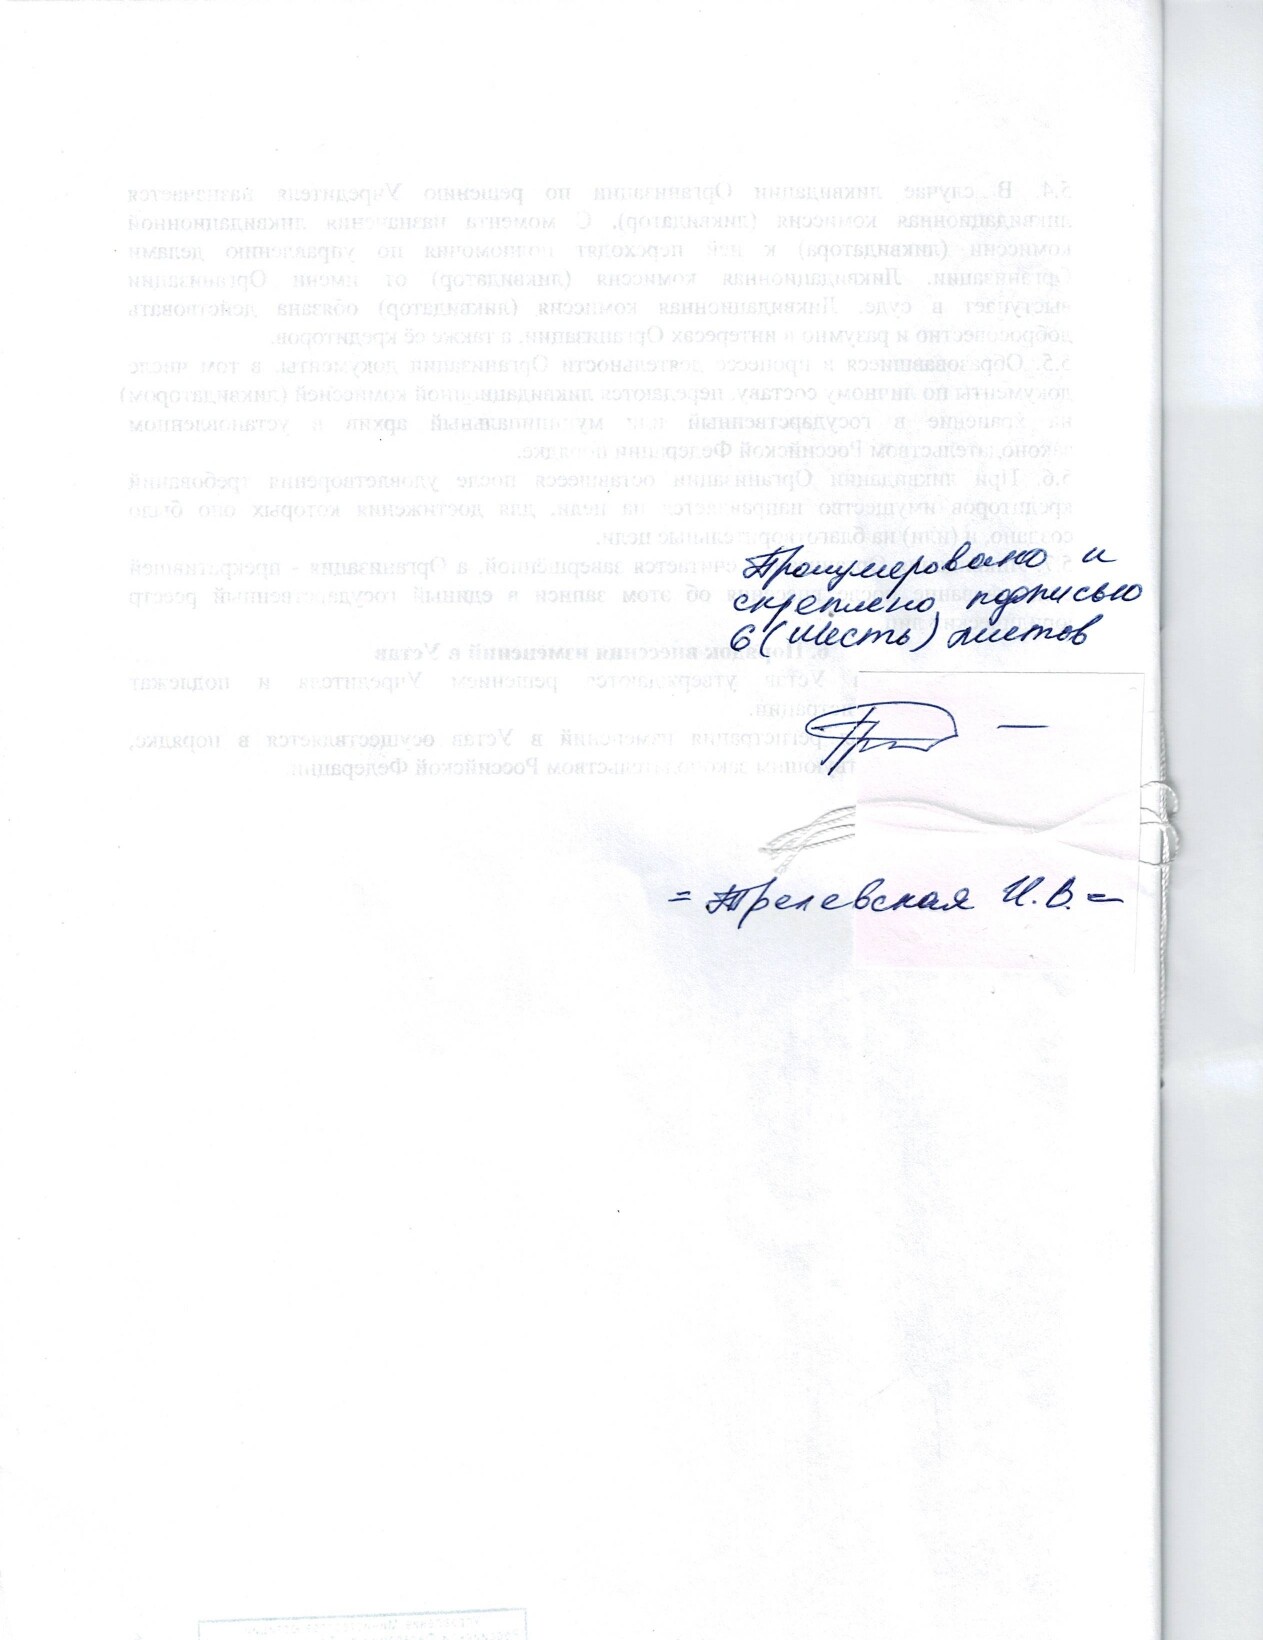 5.4. В случае ликвидации Организации по решению Учредителя назначается
ликвидационная комиссия (ликвидатор). С момента назначения ликвидационной
комиссии (ликвидатора) к ней переходят полномочия по управлению делами
Организации. Ликвидационная комиссия (ликвидатор) от имени Организации
выступает в суде. Ликвидационная комиссия (ликвидатор) обязана действовать
добросовестно и разумно в интересах Организации, а также её кредиторов.
5.5. Образовавшиеся в процессе деятельности Организации документы, в том числе
документы по личному составу, передаются ликвидационной комиссией (ликвидатором)
на хранение в государственный или муниципальный архив в установленном
законодательством Российской Федерации порядке.
5.6. При ликвидации Организации оставшееся после удовлетворения требований
кредиторов имущество направляется на цели, для достижения которых оно было
создано, и (или) на благотворительные цели.
считается завершённой, а Организация - прекратившей
после внесения об этом записи в единый государственный реестр
6. Порядок внесения изменений в Устав
в Устав утверждаются решением Учредителя и подлежат
регистрация изменений в Устав осуществляется в порядке,
законодательством Российской Федерации.
Пронумеровано и
скреплено подписью
6 (Шесть) листов
= И.В. =